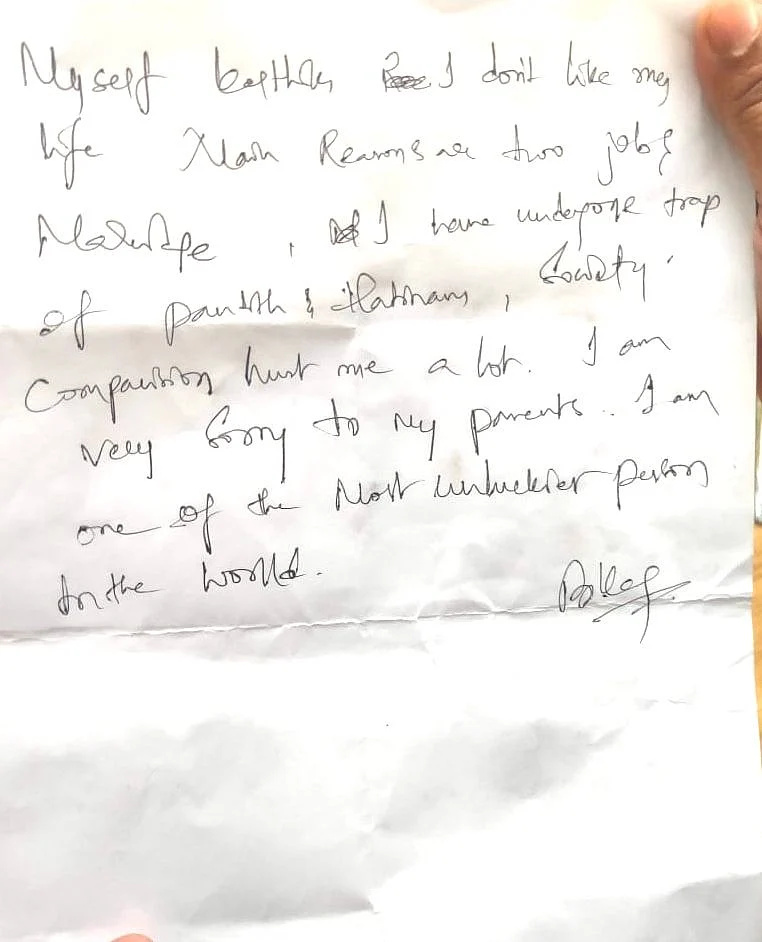 Myself I don't like my
life Main Reasons are two jobs
, I have undergone trap
of & , Society
Comparision hurt me a lot. I am
very Sorry to my parents. I am
one of the Most unluckier person
In the world.